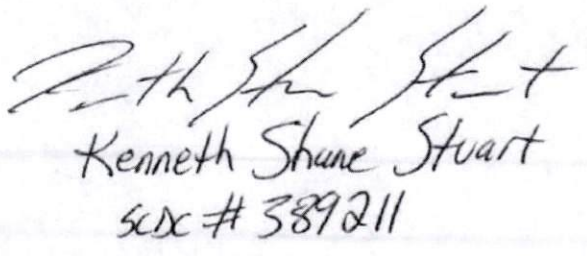 Kenneth Shane Stuart
SCDC # 389211